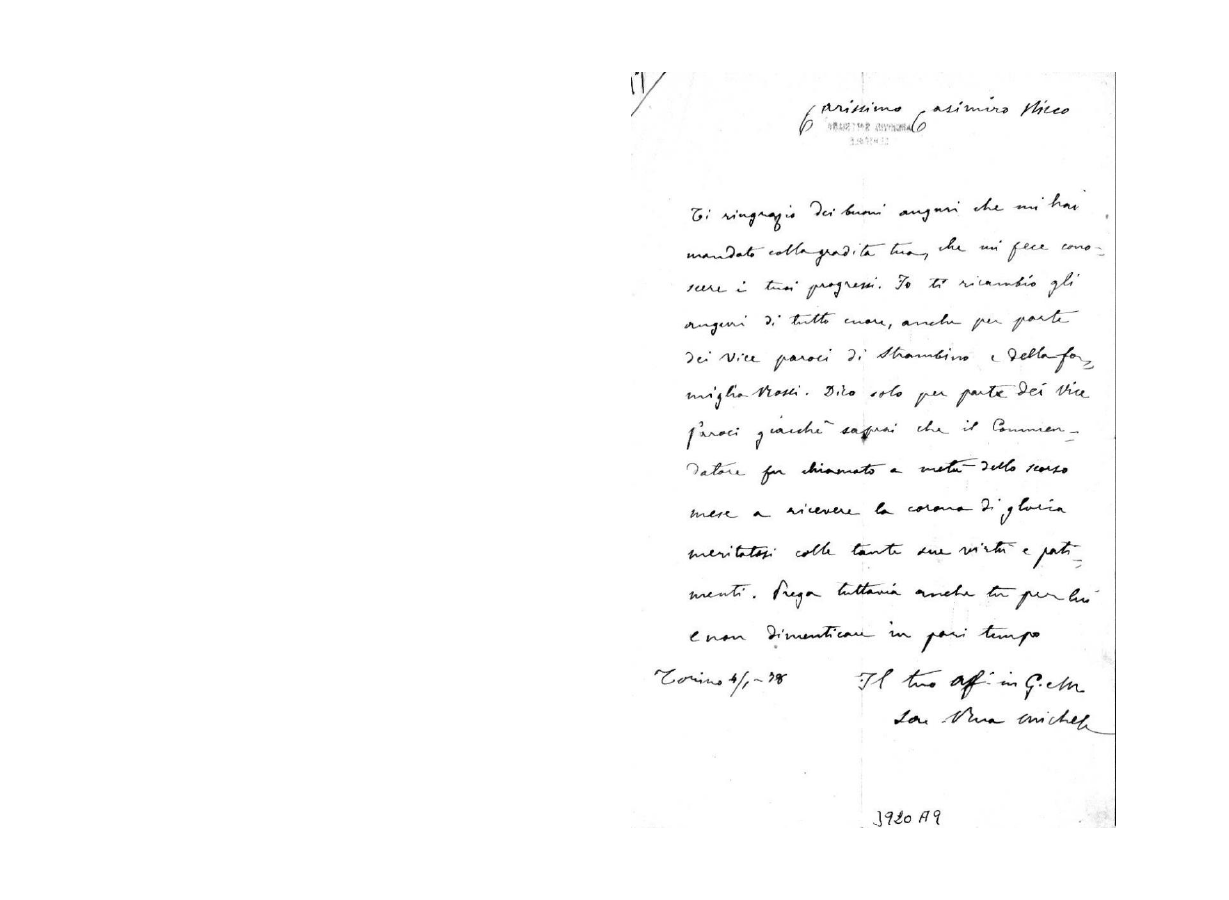 11/
Carissimo Casimiro Ricco
Ti ringrazio dei buoni auguri che mi hai
mandato colla gradita tua, che mi fece cono=
scere i tuoi progressi. Io ti ricambio gli
auguri di tutto cuore, anche per parte
dei Vice paroci di Strambino e della fa=
miglia Rossi. Dico solo per parte dei Vice
Paroci giacchè saprai che il Commen=
datore fu chiamato a metà dello scorso
mese a ricevere la corona di gloria
meritatasi colle tante sue virtù e pati=
menti. Prega tuttavia anche tu per lui
e non dimenticare in pari tempo
Torino 4/1-98
Il tuo aff. in G. e M.
Sac Rua Michele
3920 A9